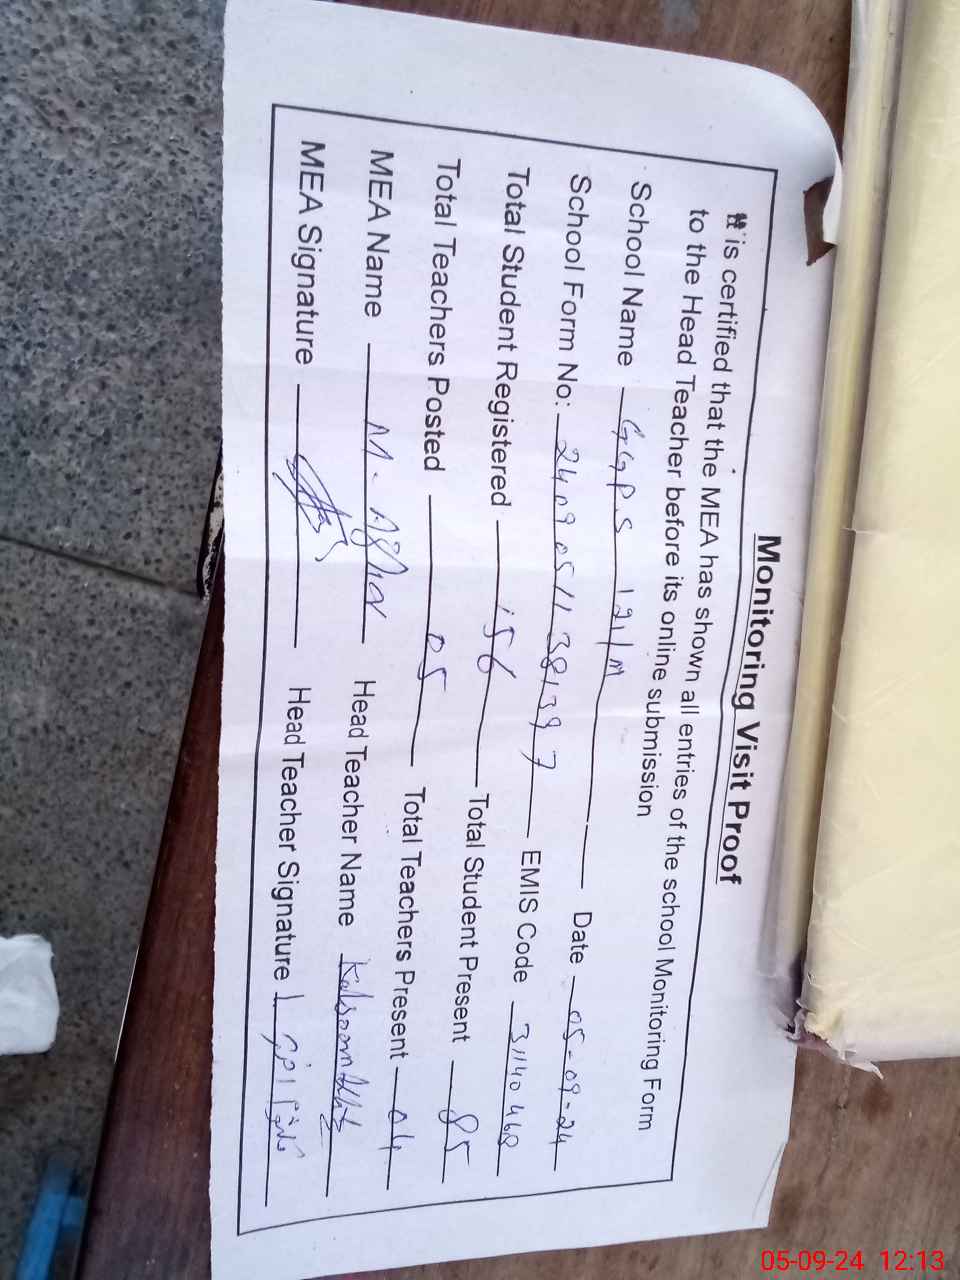 Monitoring Visit Proof
It is certified that the MEA has shown all entries of the school Monitoring Form
to the Head Teacher before its online submission
School Name GGPS 121/M Date 05-09-24
School Form No: 2409051138397 EMIS Code 31140468
Total Student Registered 156 Total Student Present 85
Total Teachers Posted 05 Total Teachers Present 04
MEA Name M. Head Teacher Name Kalsoom
MEA Signature Head Teacher Signature
05-09-24 12:13